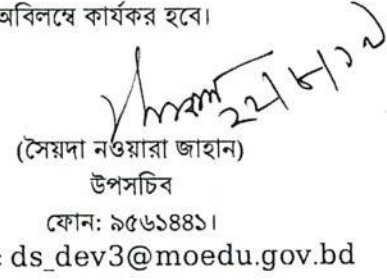 অবিলম্বে কার্যকর হবে।
(সৈয়দা নওয়ারা জাহান)
উপসচিব
ফোন: ৯৫৬১৪৪১।
: ds_dev3@moedu.gov.bd